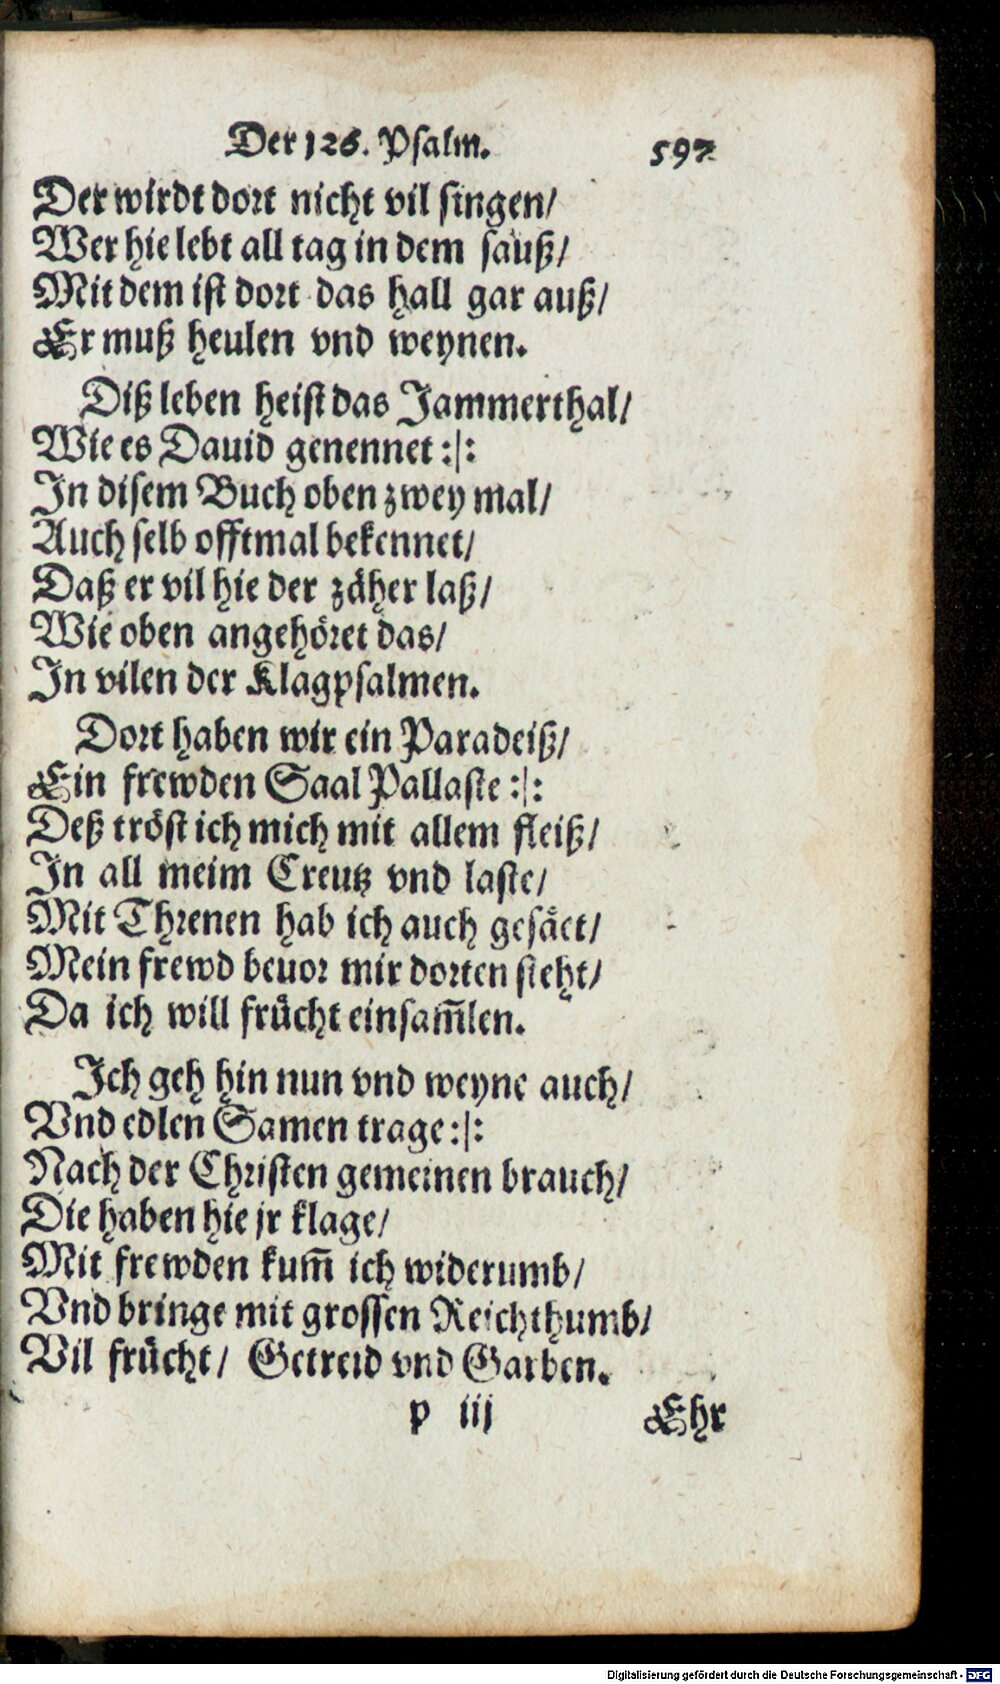 Der 126. Psalm. 597
Der wirdt dort nicht vil singen/
Wer hie lebt all tag in dem sauß/
Mit dem ist dort das hall gar auß/
Er muß heulen vnd weynen.
Diß leben heist das Jammerthal/
Wie es Dauid genennet :|:
In disem Buch oben zwey mal/
Auch selb offtmal bekennet/
Daß er vil hie der zäher laß/
Wie oben angehöret das/
In vilen der Klagpsalmen.
Dort haben wir ein Paradeiß/
Ein frewden Saal Pallaste :|:
Deß tröst ich mich mit allem fleiß/
In all meim Creutz vnd laste/
Mit Threnen hab ich auch gesäet/
Mein frewd beuor mir dorten steht/
Da ich will frücht einsam̃len.
Ich geh hin nun vnd weyne auch/
Vnd edlen Samen trage :|:
Nach der Christen gemeinen brauch/
Die haben hie jr klage/
Mit frewden kum̃ ich widerumb/
Vnd bringe mit grossen Reichthumb/
Vil frücht/ Getreid vnd Garben.
p iij Ehr
Digitalisierung gefördert durch die Deutsche Forschungsgemeinschaft - DFG